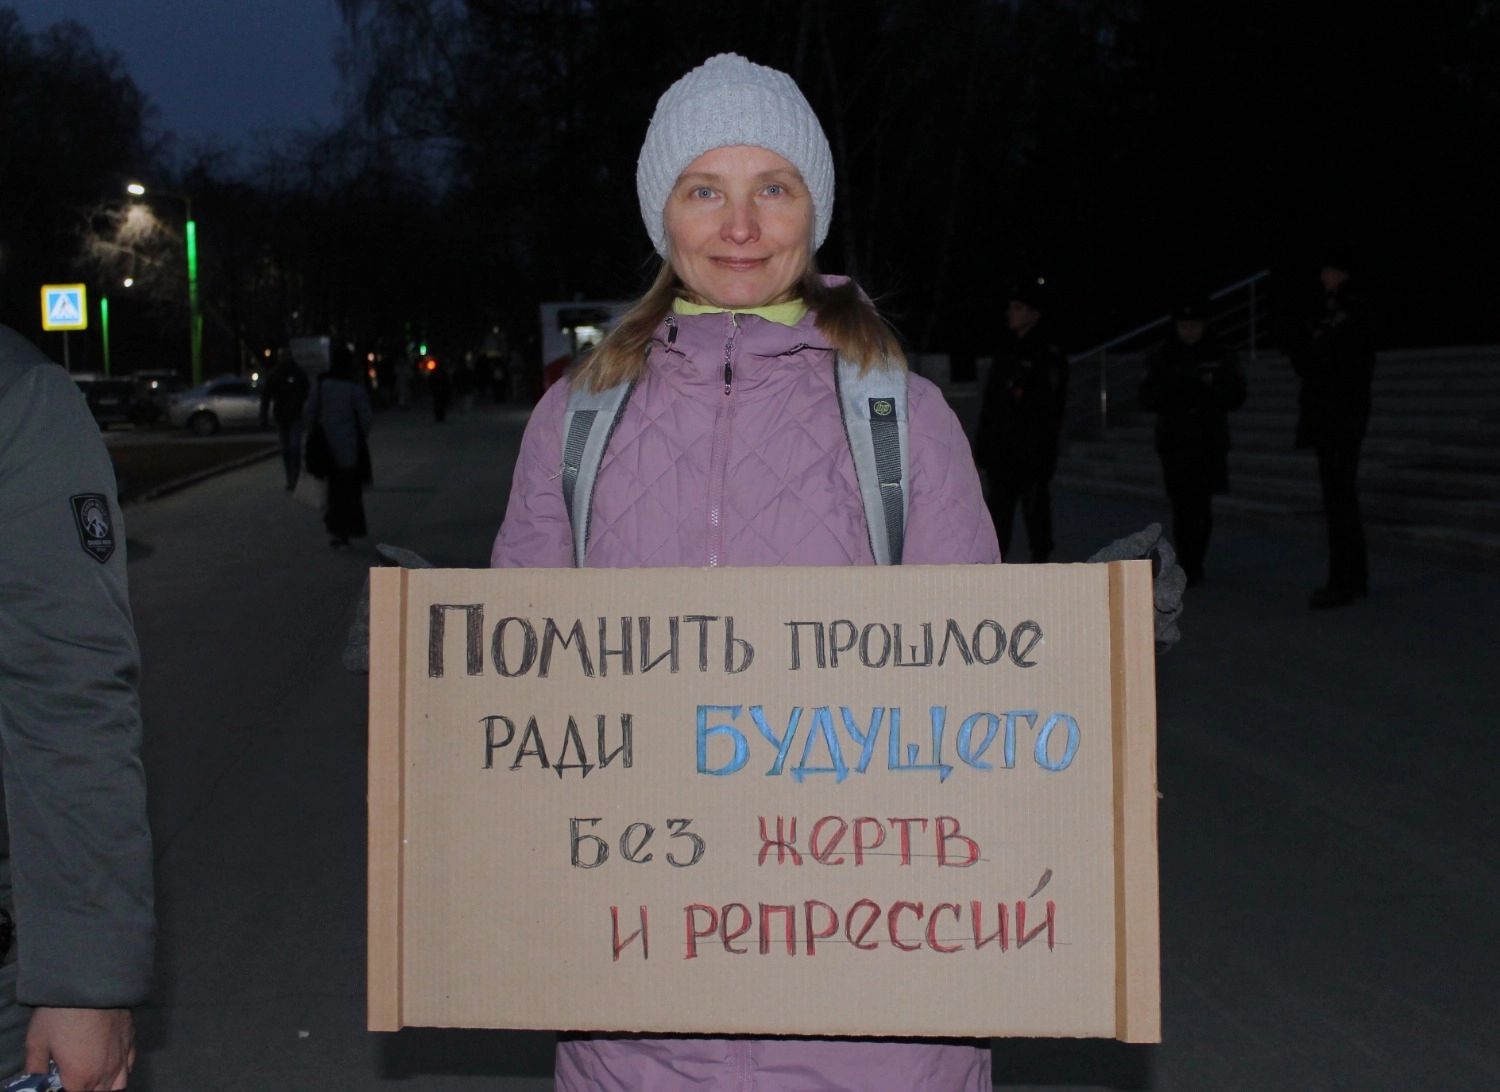 Помнить прошлое
ради будущего
без жертв
и репрессий
hp